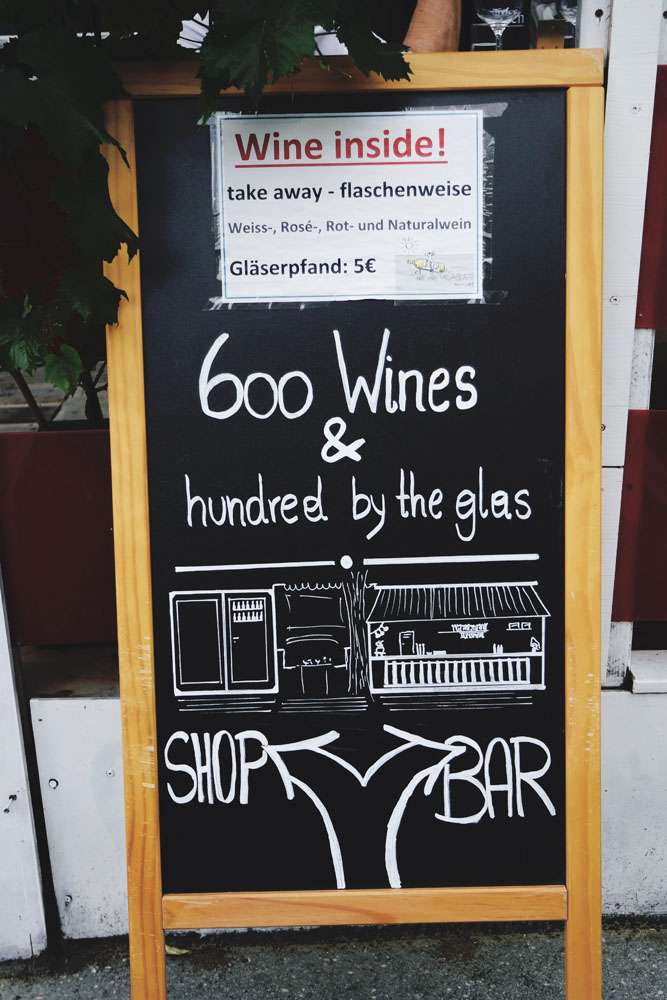 Wine inside!
take away - flaschenweise
Weiss-, Rosé-, Rot- und Naturalwein
Gläserpfand: 5€
600 Wines
&
hundred by the glas
SHOP BAR